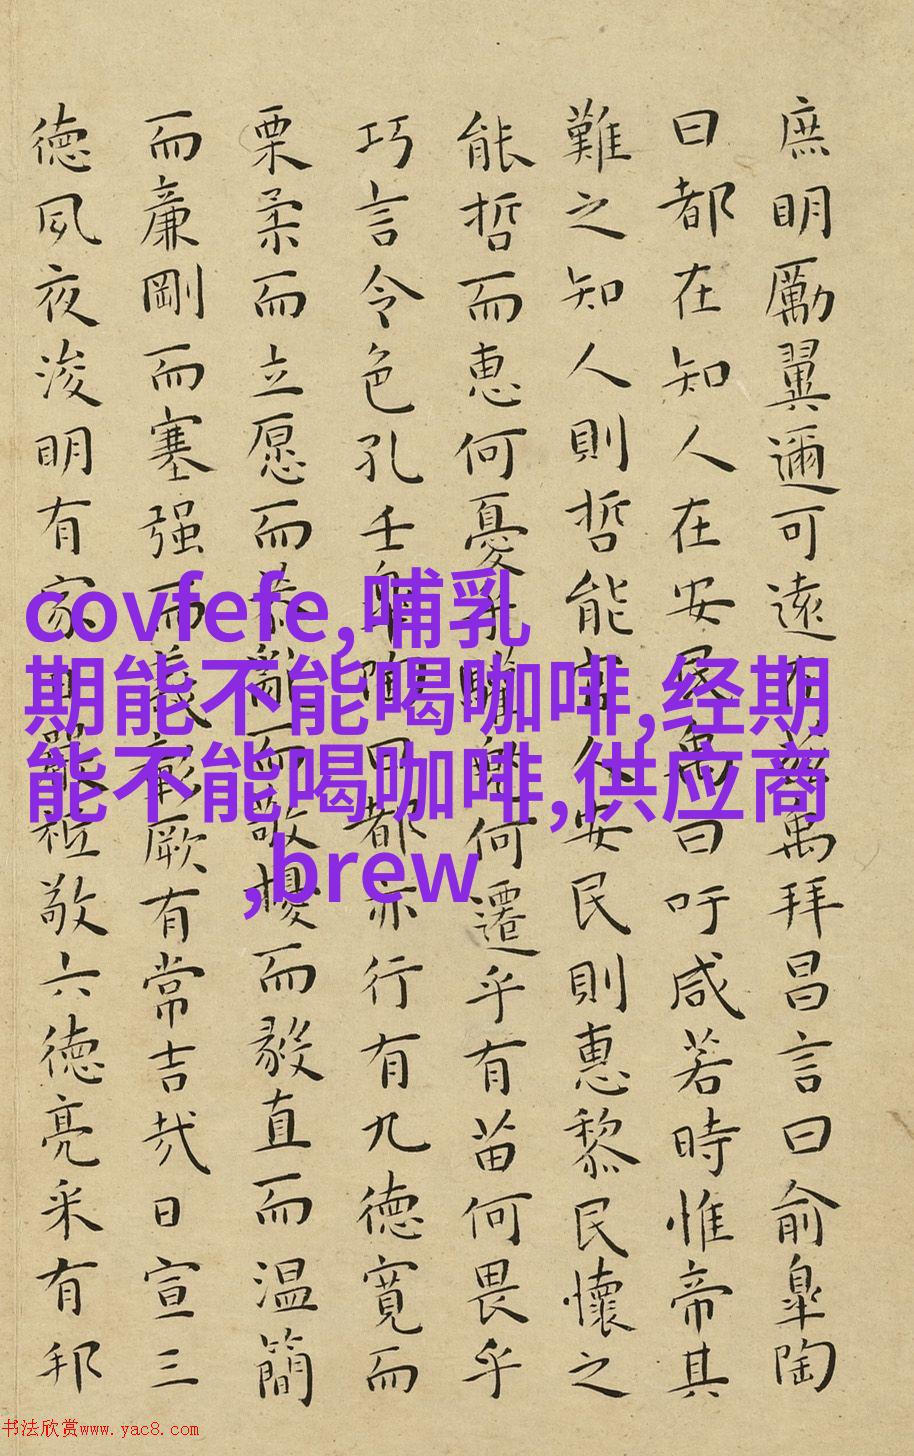 庶明勵翼邇可遠在茲禹拜昌言曰俞皐陶
曰都在知人在安民禹曰吁咸若時惟帝其
難之知人則哲能官人安民則惠黎民懷之
能哲而恵何憂乎驩兜何遷乎有苗何畏乎
巧言令色孔壬皐陶曰都亦行有九德寬而
栗柔而立愿而恭亂而敬擾而毅直而温簡
而廉剛而塞强而義彰厥有常吉哉日宣三
德夙夜浚明有家日嚴祗敬六德亮采有邦
covfefe,哺乳
期能不能喝咖啡,经期
能不能喝咖啡,供应商
,brew
书法欣赏www.yac8.com